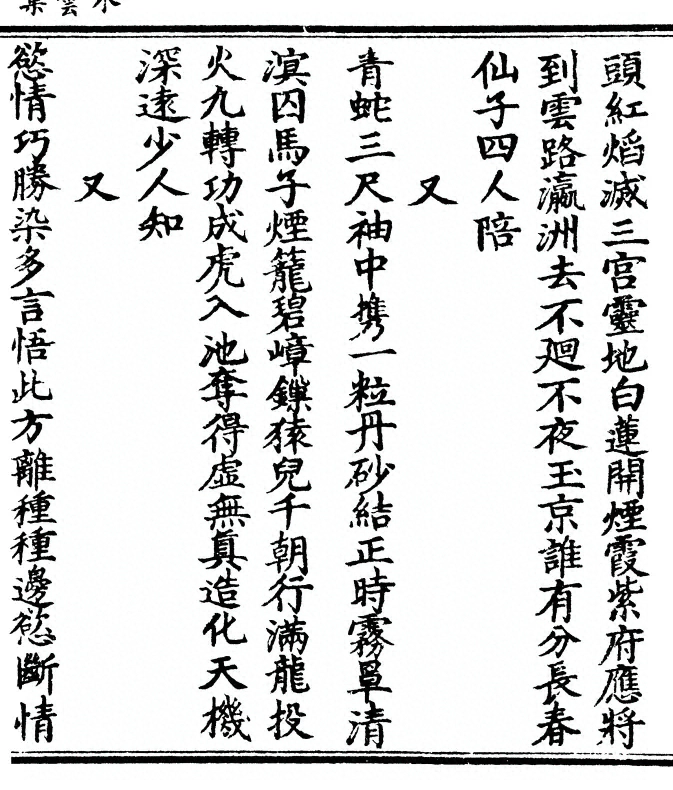 頭紅焰滅三宮靈地白蓮開煙霞紫府應將
到雲路瀛洲去不廻不夜玉京誰有分長春
仙子四人陪
又
青蛇三尺袖中携一粒丹砂結正時霧罩清
滇囚馬子煙籠碧嶂鏁猿兒千朝行滿龍投
火九轉功成虎入池奪得虛無真造化天機
深遠少人知
又
慾情巧勝染多言悟此方離種種邊慾斷情